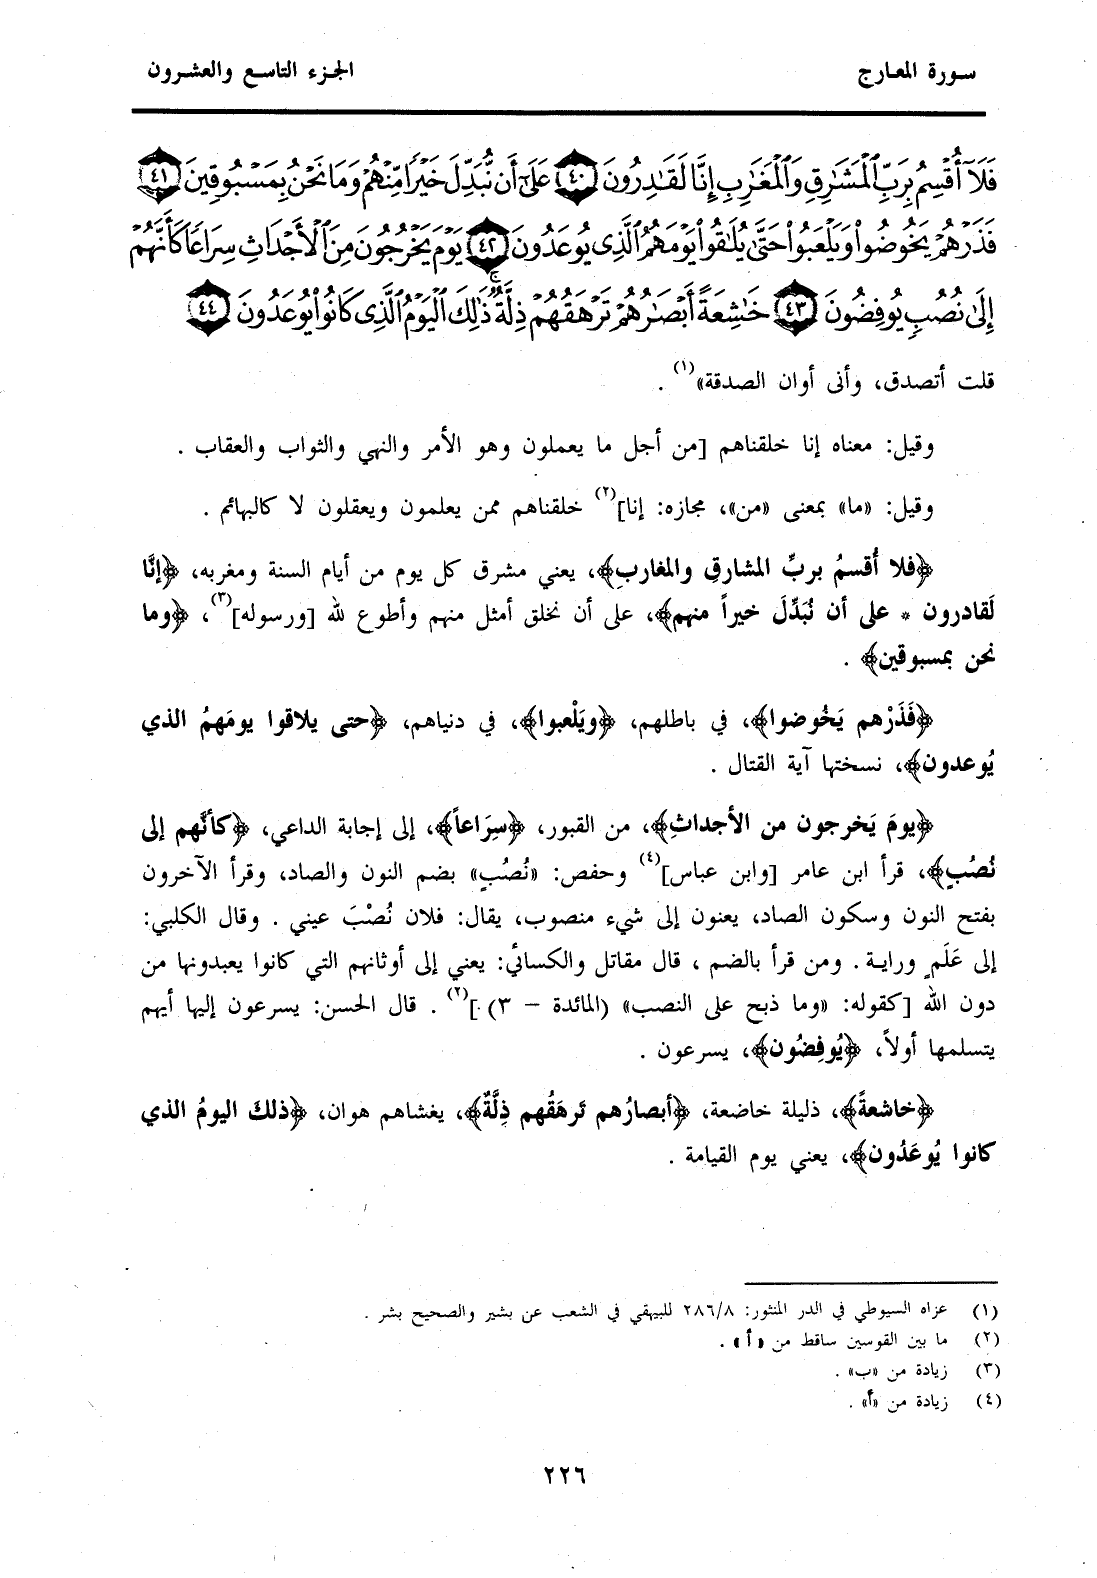 سورة المعارج
الجزء التاسع والعشرون
فَلَآ أُقْسِمُ بِرَبِّ ٱلْمَشَٰرِقِ وَٱلْمَغَٰرِبِ إِنَّا لَقَٰدِرُونَ ٤٠ عَلَىٰٓ أَن نُّبَدِّلَ خَيْرًا مِّنْهُمْ وَمَا نَحْنُ بِمَسْبُوقِينَ ٤١
فَذَرْهُمْ يَخُوضُوا۟ وَيَلْعَبُوا۟ حَتَّىٰ يُلَٰقُوا۟ يَوْمَهُمُ ٱلَّذِى يُوعَدُونَ ٤٢ يَوْمَ يَخْرُجُونَ مِنَ ٱلْأَجْدَاثِ سِرَاعًا كَأَنَّهُمْ
إِلَىٰ نُصُبٍ يُوفِضُونَ ٤٣ خَٰشِعَةً أَبْصَٰرُهُمْ تَرْهَقُهُمْ ذِلَّةٌ ۚ ذَٰلِكَ ٱلْيَوْمُ ٱلَّذِى كَانُوا۟ يُوعَدُونَ ٤٤
قلت أتصدق، وأنى أوان الصدقة»(١) .
وقيل: معناه إنا خلقناهم [من أجل ما يعملون وهو الأمر والنهي والثواب والعقاب .
وقيل: «ما» بمعنى «من»، مجازه: إنا](٢) خلقناهم ممن يعلمون ويعقلون لا كالبهائم .
﴿فلا أُقسمُ بربِّ المشارقِ والمغاربِ﴾، يعني مشرق كل يوم من أيام السنة ومغربه، ﴿إنَّا
لَقادرون * على أن نُبَدِّلَ خيراً منهم﴾، على أن نخلق أمثل منهم وأطوع لله [ورسوله](٣)، ﴿وما
نحن بمسبوقين﴾ .
﴿فَذَرْهم يَخُوضوا﴾، في باطلهم، ﴿ويَلْعبوا﴾، في دنياهم، ﴿حتى يلاقوا يومَهمُ الذي
يُوعدون﴾، نسختها آية القتال .
﴿يومَ يَخرجون من الأجداثِ﴾، من القبور، ﴿سِرَاعاً﴾، إلى إجابة الداعي، ﴿كأنَّهم إلى
نُصُبٍ﴾، قرأ ابن عامر [وابن عباس](٤) وحفص: «نُصُبٍ» بضم النون والصاد، وقرأ الآخرون
بفتح النون وسكون الصاد، يعنون إلى شيء منصوب، يقال: فلان نُصْبَ عيني . وقال الكلبي:
إلى عَلَمٍ ورايـة . ومن قرأ بالضم ، قال مقاتل والكسائي: يعني إلى أوثانهم التي كانوا يعبدونها من
دون الله [كقوله: «وما ذبح على النصب» (المائدة – ٣).](٢) . قال الحسن: يسرعون إليها أيهم
يتسلمها أولاً، ﴿يُوفِضُون﴾، يسرعون .
﴿خاشعةً﴾، ذليلة خاضعة، ﴿أبصارُهم تَرهَقُهم ذِلَّةٌ﴾، يغشاهم هوان، ﴿ذلكَ اليومُ الذي
كانوا يُوعَدُون﴾، يعني يوم القيامة .
(١) عزاه السيوطي في الدر المنثور: ٢٨٦/٨ للبيهقي في الشعب عن بشير والصحيح بشر .
(٢) ما بين القوسين ساقط من «أ» .
(٣) زيادة من «ب» .
(٤) زيادة من «أ» .
٢٢٦